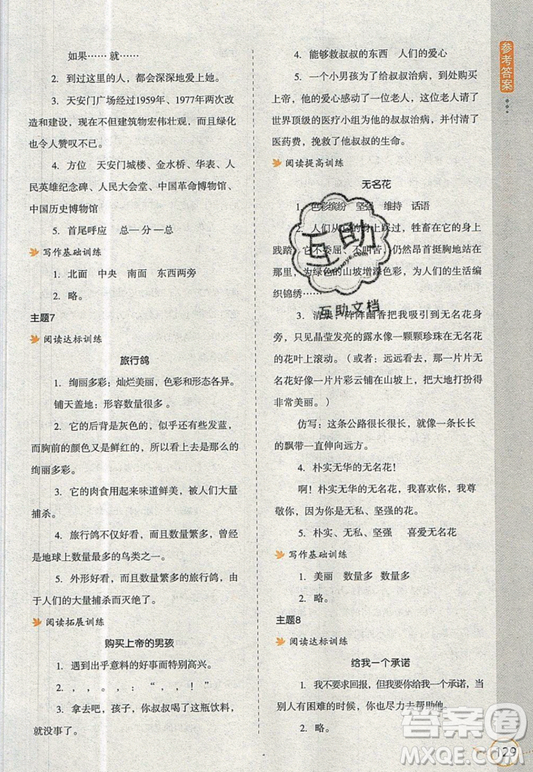 如果…… 就……
2. 到过这里的人，都会深深地爱上她。
3. 天安门广场经过1959年、1977年两次改
造和建设，现在不但建筑物宏伟壮观，而且绿化
也令人赞叹不已。
4. 方位 天安门城楼、金水桥、华表、人
民英雄纪念碑、人民大会堂、中国革命博物馆、
中国历史博物馆
5. 首尾呼应 总—分—总
写作基础训练
1. 北面 中央 南面 东西两旁
2. 略。
主题7
阅读达标训练
旅行鸽
1. 绚丽多彩：灿烂美丽，色彩和形态各异。
铺天盖地：形容数量很多。
2. 它的后背是灰色的，似乎还有些发蓝，
而胸前的颜色又是鲜红的，所以看上去是那么的
绚丽多彩。
3. 它的肉食用起来味道鲜美，被人们大量
捕杀。
4. 旅行鸽不仅好看，而且数量繁多，曾经
是地球上数量最多的鸟类之一。
5. 外形好看，而且数量繁多的旅行鸽，因
为人们的大量捕杀而灭绝了。
阅读拓展训练
购买上帝的男孩
1. 遇到出乎意料的好事而特别高兴。
2. ， ， 。 ： “ ， ， ！ ”
3. 拿去吧，孩子，你叔叔喝了这瓶饮料，
就没事了。
4. 能够救叔叔的东西 人们的爱心
5. 一个小男孩为了给叔叔治病，到处购买
上帝，他的爱心感动了一位老人，这位老人请了
世界顶级的医疗小组为他叔叔治病，并帮他付了
医药费，挽救了他叔叔的生命。
阅读提高训练
无名花
1. 色彩缤纷 坚强 维持 话语
2. 人们从它的身上走过，牲畜在它的身上
践踏，它不 、不叫苦，仍然昂首挺胸地站在
那里，为绿色的山坡增添光彩，为人们的生活编
织锦绣……
3. 清晨，阵阵幽香把我吸引到无名花身
旁，只见晶莹发亮的露水像一颗颗珍珠在无名花
的花叶上滚动。（或者）远远看去，那一片片无
名花就像一片片彩云铺在山坡上，是那样美，那
样的丰富多彩！
仿写：这条公路很长很长，就像一条长长
的飘带一直伸向远方。
4. 朴实无华的无名花，我喜欢你，我尊敬
你，因为你是无私、坚强的花朵。
5. 朴实、无私、坚强 喜爱无名花
写作基础训练
1. 美丽 数量多 数量多
2. 略。
主题8
阅读达标训练
给我一个承诺
1. 我不要求回报，但我要你给我一个承诺，当
别人有困难的时候，你也尽力去帮助他。
2. 略。
参考答案
129
互助
互助文档
答案圈
MXQE.COM